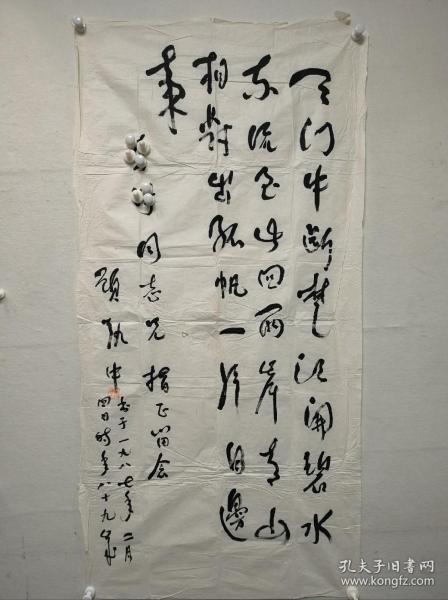 天门中断楚江开碧水
东流至此回两岸青山
相对出孤帆一片日边
来
同志兄指正留念
顾执中
书于一九八七年二月
四日时年八十九岁
孔夫子旧书网
www.kongfz.com